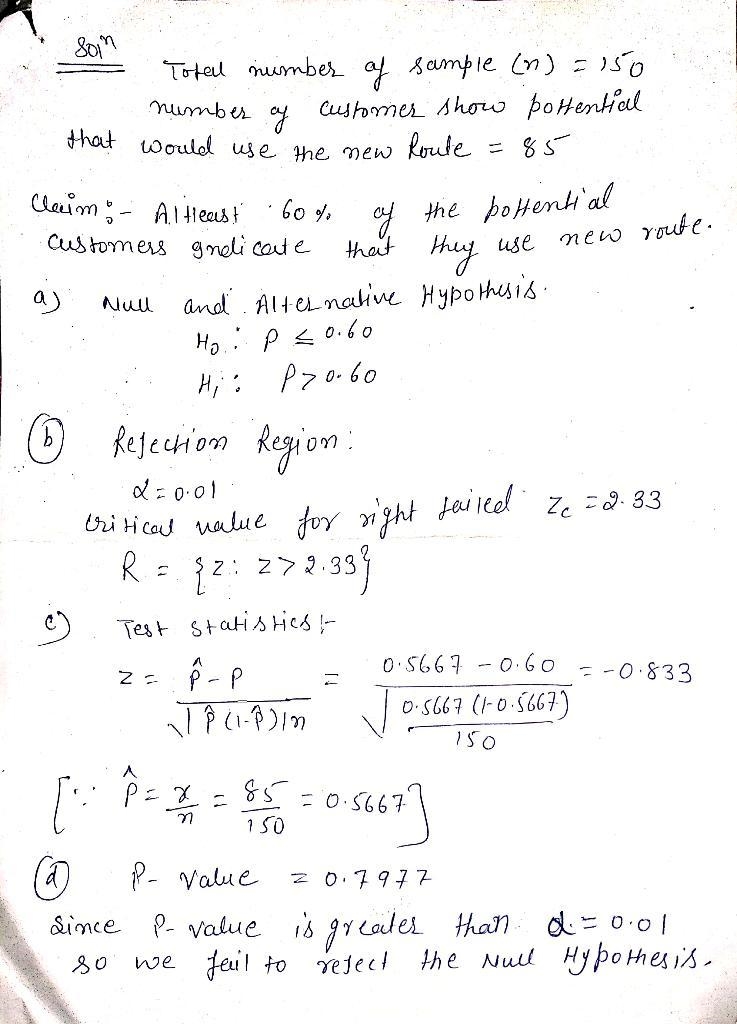 Solⁿ
Total number of sample (n) = 150
number of customer show pottential
that would use the new Route = 85
Claim :- Altleast 60 % of the pottential
customers gndicate that they use new route.
a) Null and Alternative Hypothesis.
H₀ : P ≤ 0.60
H₁ : P > 0.60
(b) Rejection Region :
α = 0.01
Critical value for right tailed Z_c = 2.33
R = {z : z > 2.33}
c) Test statistics :-
z = (p̂ - p) / √(p̂(1-p̂)/n) = (0.5667 - 0.60) / √(0.5667 (1-0.5667) / 150) = -0.833
[∵ p̂ = x/n = 85/150 = 0.5667]
(d) P- Value = 0.7977
Since P- value is greater than α = 0.01
so we fail to reject the Null Hypothesis.